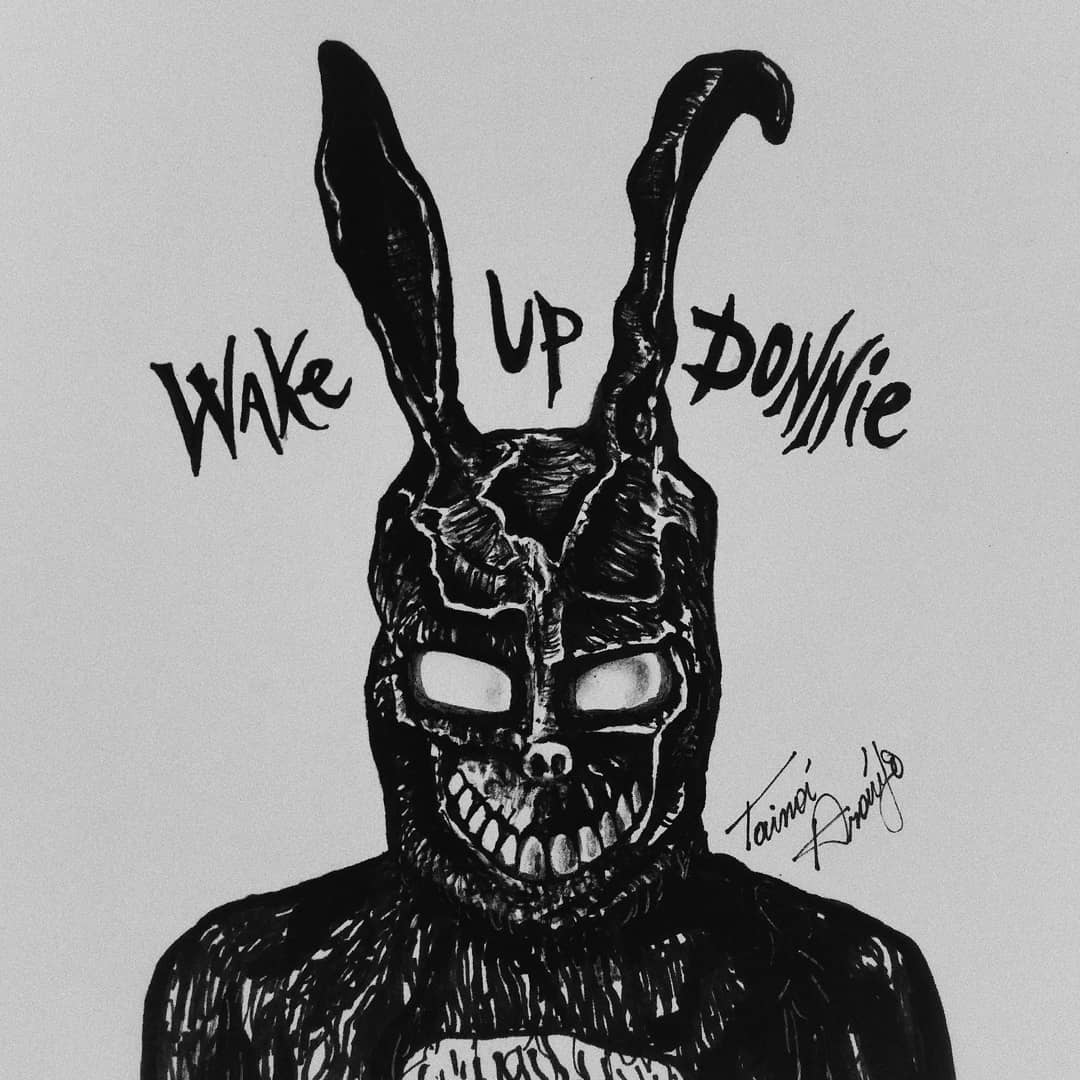 WAKe UP DONNie
Tainá
Araújo